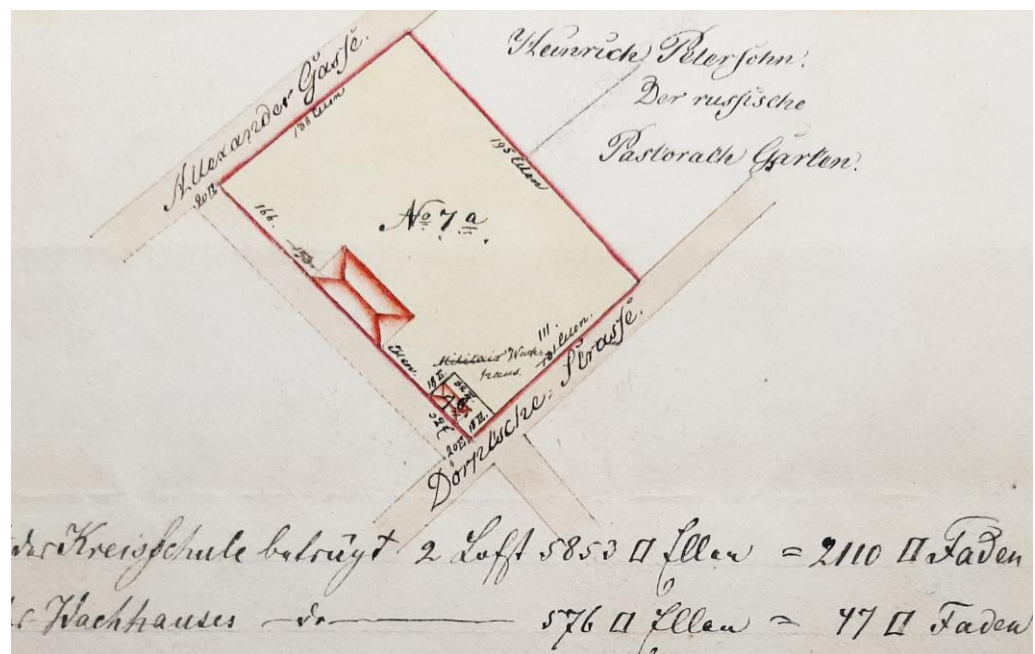 Alexander Gasse.
Heinrich Petersohn.
Der russische
Pastorath Garten.
195 Ellen
20 E.
166.
No. 7 a.
III.
Ellen.
Militair Wach-
haus.
18 E.
18 E.
20 E.
Dörptsche Strasse.
der Kreisschule beträgt 2 Lofst 5853 □ Ellen = 2110 □ Faden
Wachhauses do 576 □ Ellen = 47 □ Faden